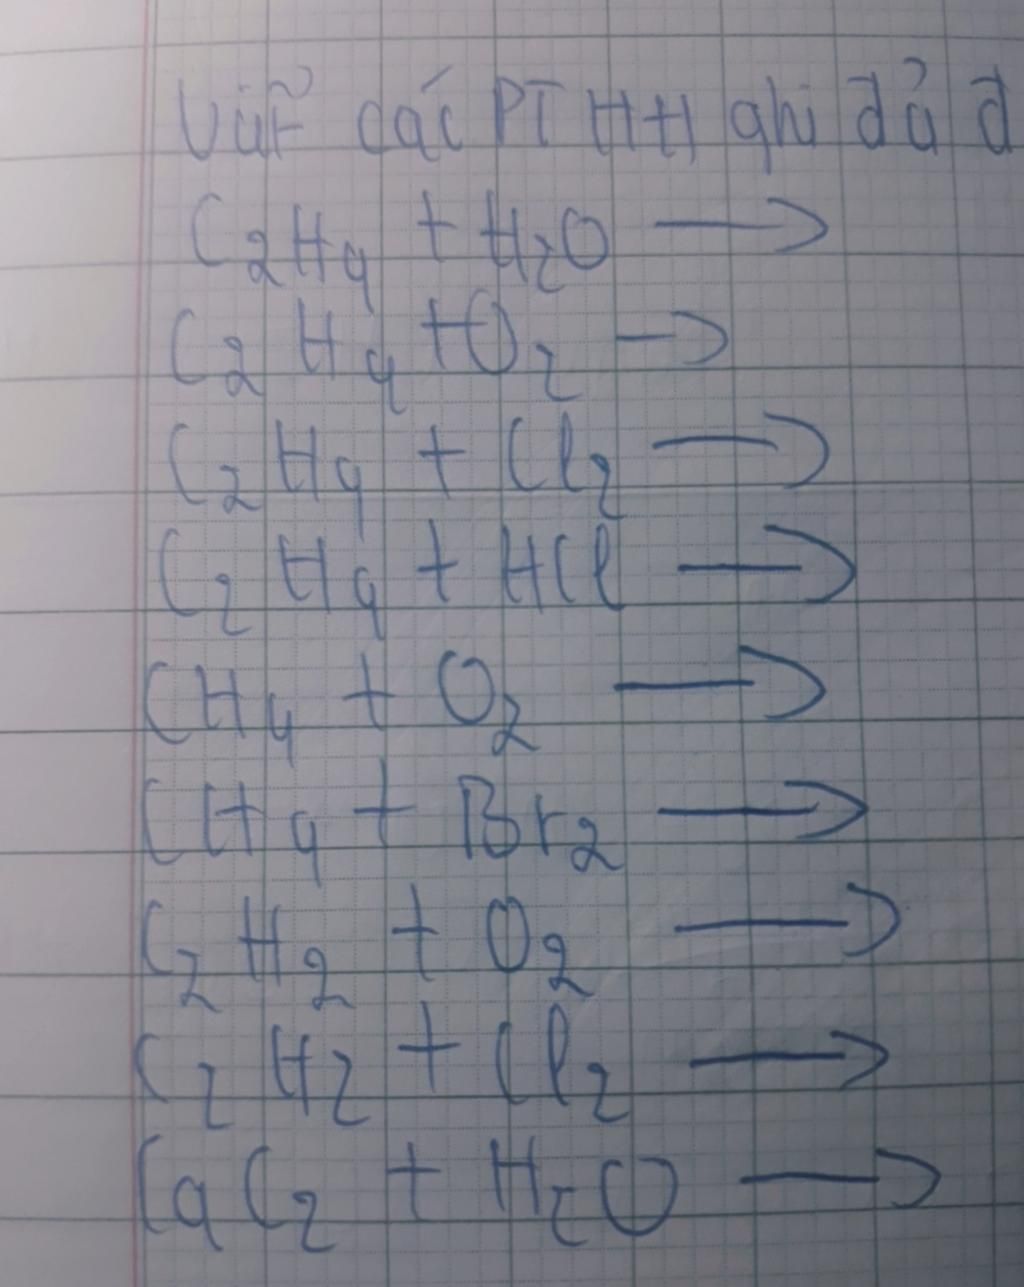 Viết các PT HH ghi đủ đ
C2H4 + H2O →
C2H4 + O2 →
C2H4 + Cl2 →
C2H4 + HCl →
CH4 + O2 →
CH4 + Br2 →
C2H2 + O2 →
C2H2 + Cl2 →
CaC2 + H2O →